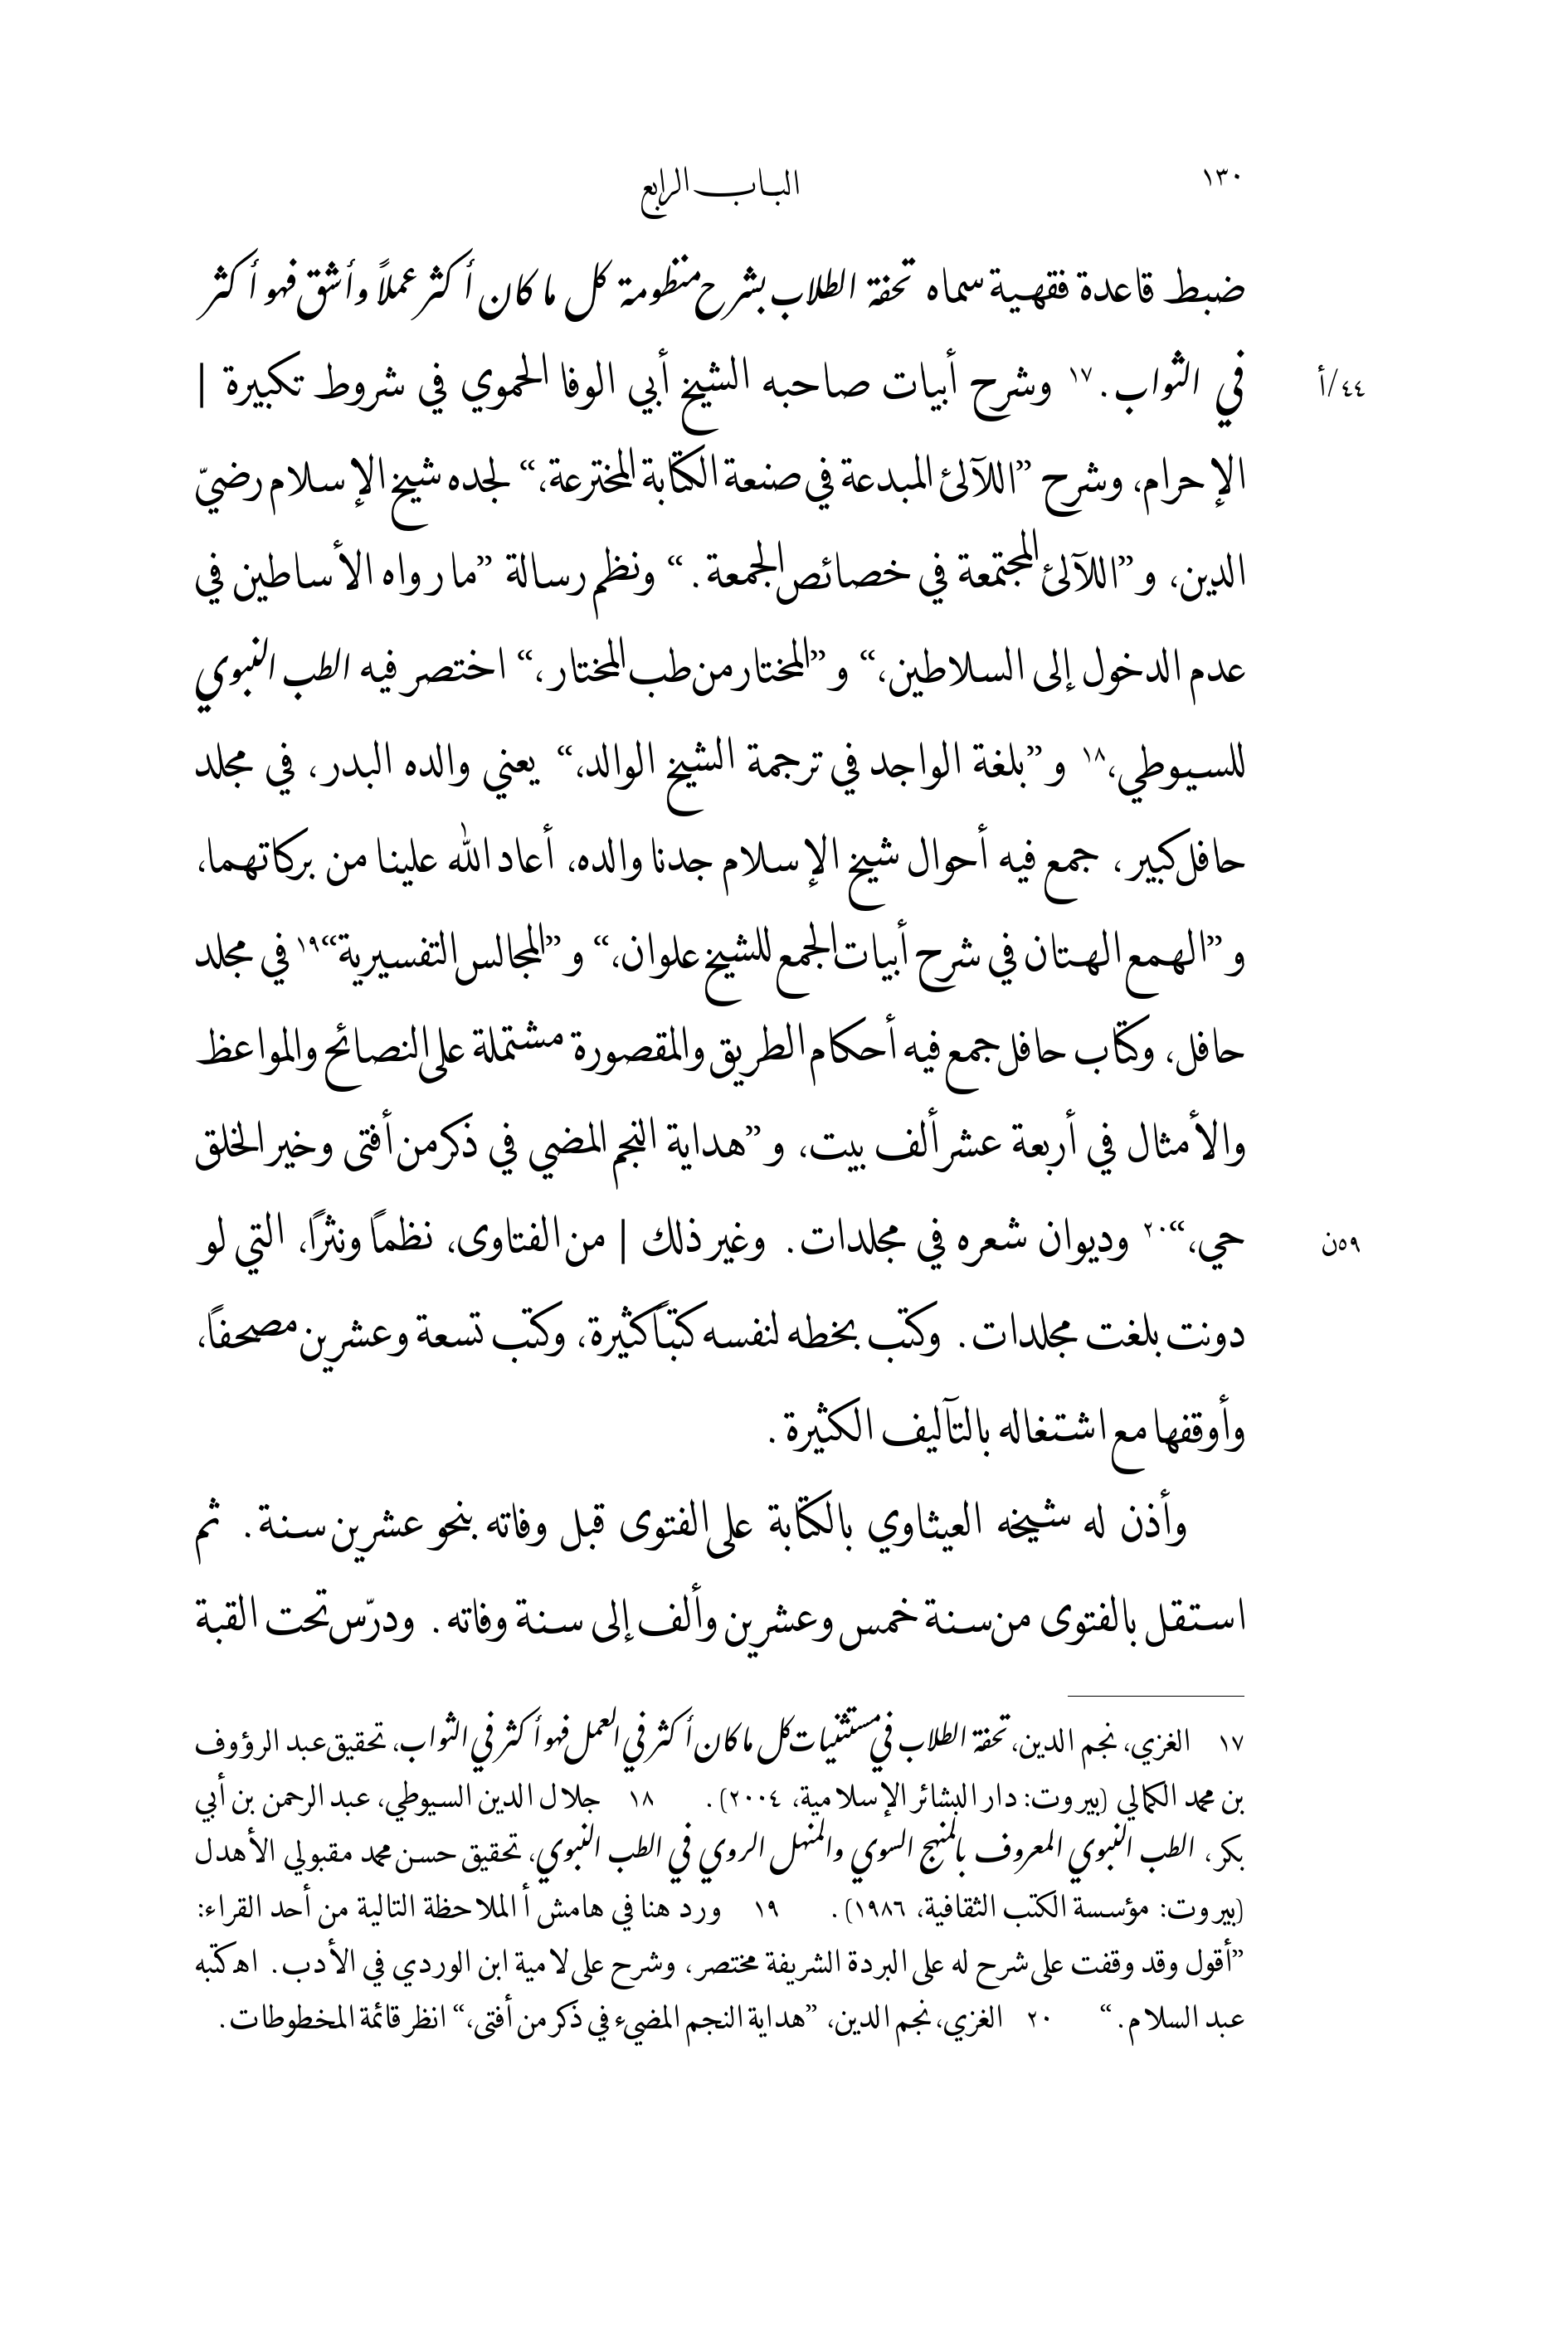 ١٣٠ الباب الرابع
ضبط قاعدة فقهية سماه تحفة الطلاب بشرح منظومة كل ما كان أكثر عملاً وأشق فهو أكثر
في الثواب.١٧ وشرح أبيات صاحبه الشيخ أبي الوفا الحموي في شروط تكبيرة | ٤٤/أ
الإحرام، وشرح ”اللآلئ المبدعة في صنعة الكتابة المخترعة،“ لجده شيخ الإسلام رضيّ
الدين، و”اللآلئ المجتمعة في خصائص الجمعة.“ ونظم رسالة ”ما رواه الأساطين في
عدم الدخول إلى السلاطين،“ و”المختار من طب المختار،“ اختصر فيه الطب النبوي
للسيوطي،١٨ و”بلغة الواجد في ترجمة الشيخ الوالد،“ يعني والده البدر، في مجلد
حافل كبير، جمع فيه أحوال شيخ الإسلام جدنا والده، أعاد الله علينا من بركاتهما،
و”الهمع الهتان في شرح أبيات الجمع للشيخ علوان،“ و”المجالس التفسيرية“١٩ في مجلد
حافل، وكتاب حافل جمع فيه أحكام الطريق والمقصورة مشتملة على النصائح والمواعظ
والأمثال في أربعة عشر ألف بيت، و”هداية النجم المضي في ذكر من أفتى وخير الخلق
حي،“٢٠ وديوان شعره في مجلدات. وغير ذلك | من الفتاوى، نظماً ونثراً، التي لو ٥٩ن
دونت بلغت مجلدات. وكتب بخطه لنفسه كتباً كثيرة، وكتب تسعة وعشرين مصحفاً،
وأوقفها مع اشتغاله بالتآليف الكثيرة.
وأذن له شيخه العيثاوي بالكتابة على الفتوى قبل وفاته بنحو عشرين سنة. ثم
استقل بالفتوى من سنة خمس وعشرين وألف إلى سنة وفاته. ودرّس تحت القبة
١٧ الغزي، نجم الدين، تحفة الطلاب في مستثنيات كل ما كان أكثر في العمل فهو أكثر في الثواب، تحقيق عبد الرؤوف
بن محمد الكمالي (بيروت: دار البشائر الإسلامية، ٢٠٠٤). ١٨ جلال الدين السيوطي، عبد الرحمن بن أبي
بكر، الطب النبوي المعروف بالمنهج السوي والمنهل الروي في الطب النبوي، تحقيق حسن محمد مقبولي الأهدل
(بيروت: مؤسسة الكتب الثقافية، ١٩٨٦). ١٩ ورد هنا في هامش أ الملاحظة التالية من أحد القراء:
”أقول وقد وقفت على شرح له على البردة الشريفة مختصر، وشرح على لامية ابن الوردي في الأدب. اهـ كتبه
عبد السلام.“ ٢٠ الغزي، نجم الدين، ”هداية النجم المضيء في ذكر من أفتى،“ انظر قائمة المخطوطات.